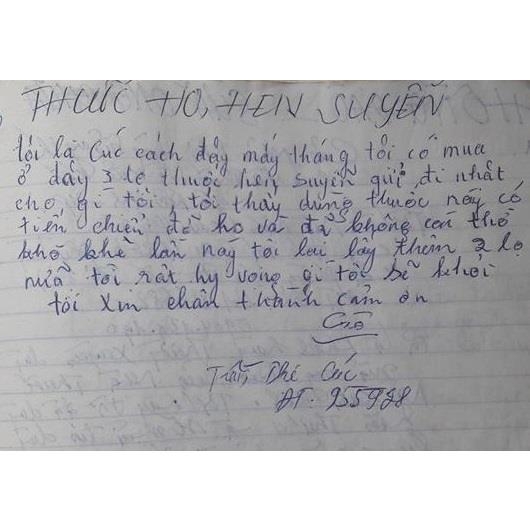 THUỐC HO, HEN SUYỄN
tôi là Cúc cách đây mấy tháng tôi có mua
ở đây 3 lọ thuốc hen suyễn gửi đi nhật
cho dì tôi, tôi thấy dùng thuốc này có
tiến chiển đỡ ho và đã không còn thở
khò khè lần này tôi lại lấy thêm 2 lọ
nữa tôi rất hy vọng dì tôi sẽ khỏi
tôi xin chân thành cảm ơn
Cúc
Trần Thị Cúc
ĐT: 255928